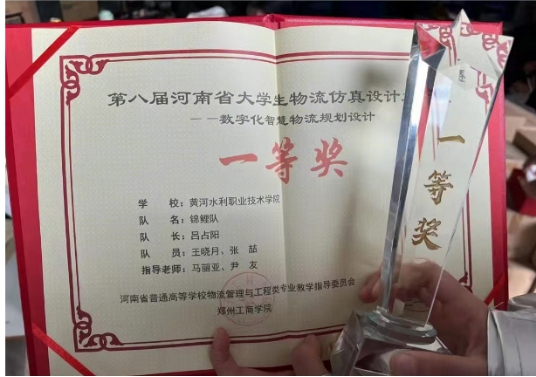 第八届河南省大学生物流仿真设计
——数字化智慧物流规划设计
一等奖
学 校：黄河水利职业技术学院
队 名：锦鲤队
队 长：吕占阳
队 员：王晓月、张 喆
指导老师：马丽亚、尹 友
河南省普通高等学校物流管理与工程类专业教学指导委员会
郑州工商学院
一等奖